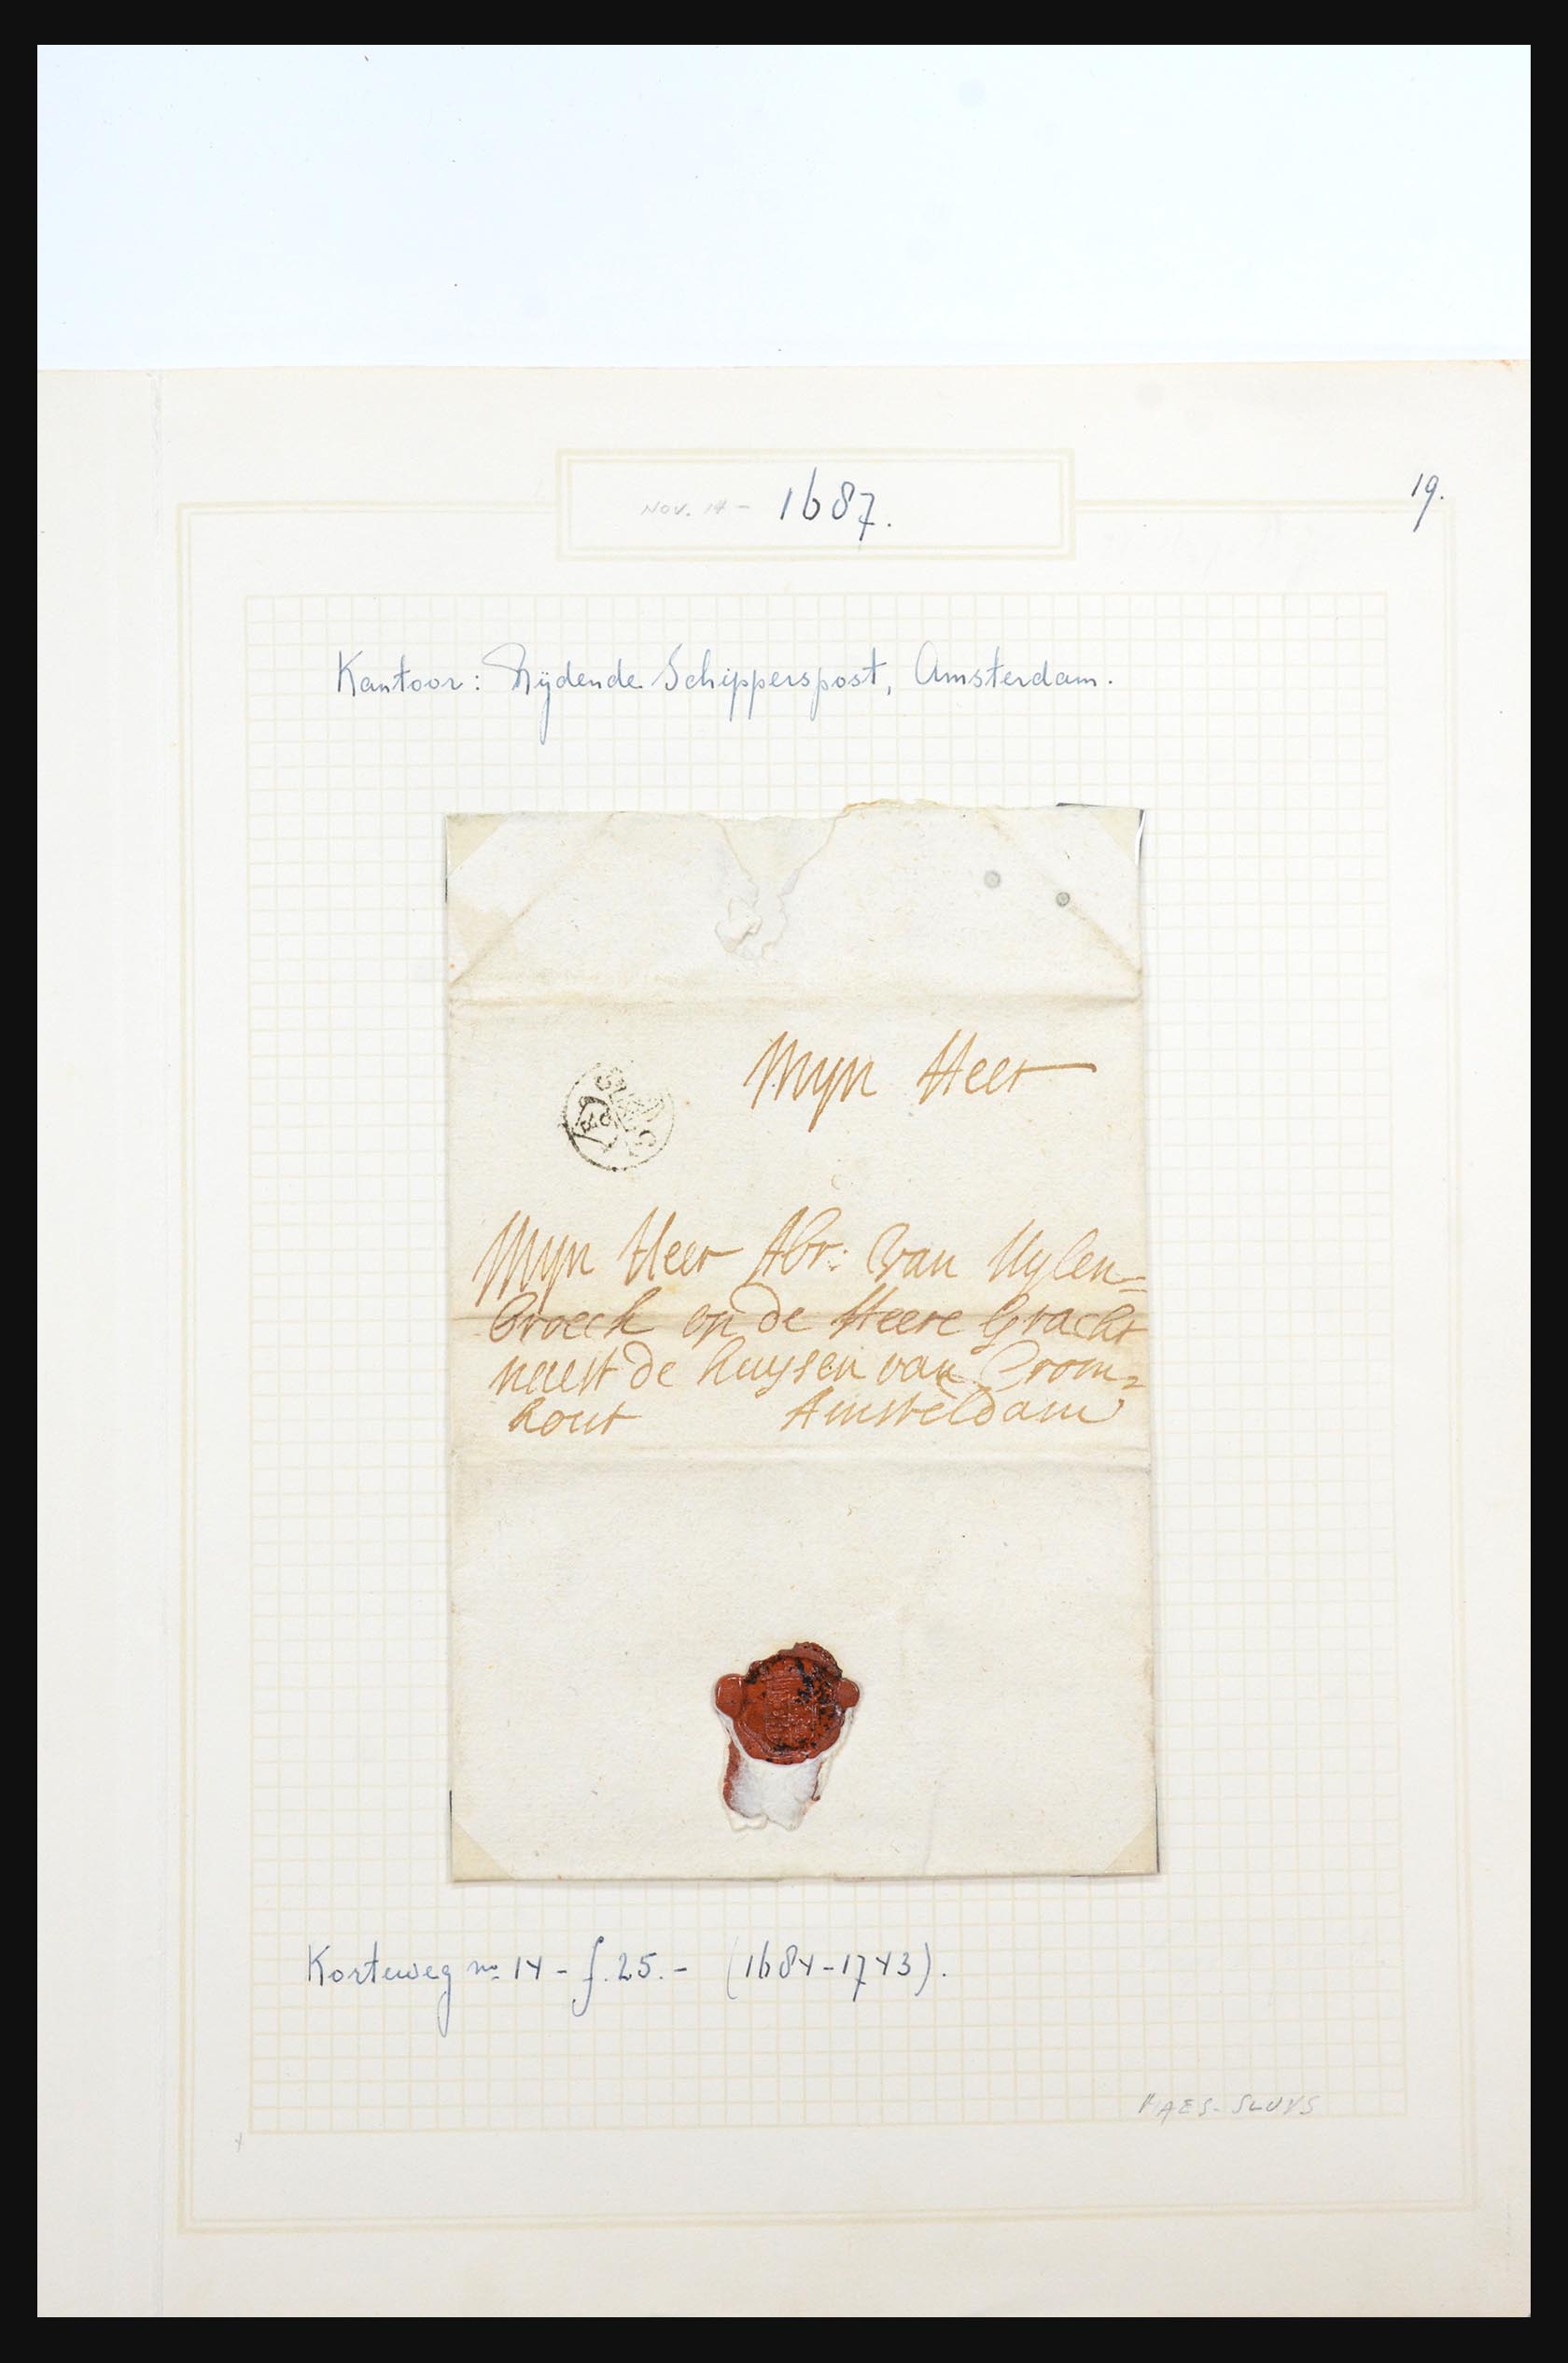 NOV. 14 - 1687.
19.
Kantoor: Rijdende Schipperspost, Amsterdam.
Mijn Heer
Mijn Heer Abr: Van Uylen=
broeck op de Heere Gracht
naest de huysen van Crom=
hout Amsteldam
Korteweg no 14 - f. 25.- (1684-1743).
MAES-SLUYS